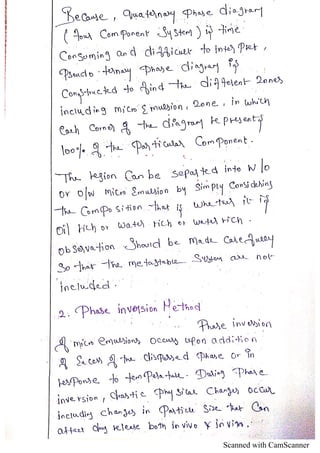 Because, quaternary phase diagram
(four component system) is time
Consuming and difficult to interpret,
Pseudo-ternary phase diagram is
Constructed to find the different zones
including micro Emulsion, zone, in which
Each corner of the diagram represents
100% of the Particular Component.
The region can be separted into W/O
or O/W micro Emulsion by simply considering
the composition that is whether it is
oil rich or water rich or water rich.
observation should be made carefully
so that the metastable system are not
included.
2. Phase inversion Method
Phase inversion
of micro emulsions occurs upon addition
of Excess of the dispersed phase or in
response to temperature. During Phase
inversion, drastic physical changes occur
including changes in Particle size that can
affect drug release both in vivo & in vitro.
Scanned with CamScanner